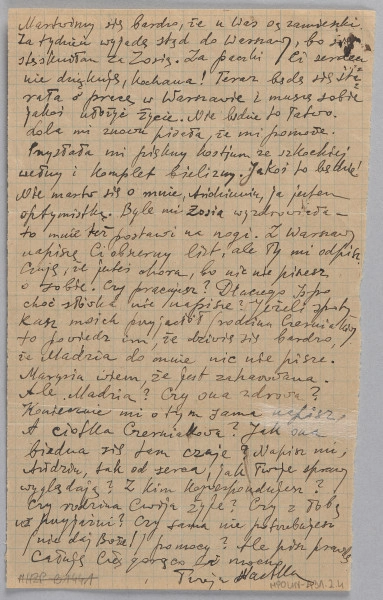 Martwimy się bardzo, że u Was są zamieszki.
Za tydzień wyjadę stąd do Warszawy, bo się
stęskniłam za Zosią. Za paczki Ci serdecz
nie dziękuję, kochana! Teraz będę się sta
rała o pracę w Warszawie i muszę sobie
jakoś ułożyć życie. Nie będzie to łatwo.
dola mi znowu pisała, że mi pomoże.
Przysłała mi piękny kostjum ze szkockiej
wełny i komplet bielizny. Jakoś to będzie!
Nie martw się o mnie, ja jestem
optymistką. Byle mi Zosia wyzdrowiała –
to mnie też postawi na nogi. Z Warszawy
napiszę Ci obszerny list, ale Ty mi odpisz.
Czuję, że jesteś chora, bo nic nie piszesz
o sobie. Czy pracujesz? Dlaczego
choć słówka nie napisze? Jeżeli spoty
kasz moich przyjaciół rodzinę
to powiedz im, że dziwię się bardzo,
że Madzia do mnie nic nie pisze.
Marysia wiem, że jest
Ale Madzia? Czy ona zdrowa?
Koniecznie mi o tym sama napisz.
A ciotka Czerniakowa? Jak ona
biedna się tam czuje? Napisz mi,
tak od serca, jak Twoje sprawy
wyglądają? Z kim korespondujesz?
Czy rodzina żyje? Czy z Tobą
w przyjaźni? Czy sama nie potrzebujesz
/nie daj Boże!/ pomocy? Ale pisz prawdę
Całuję Cię gorąco i mocno
Twoja